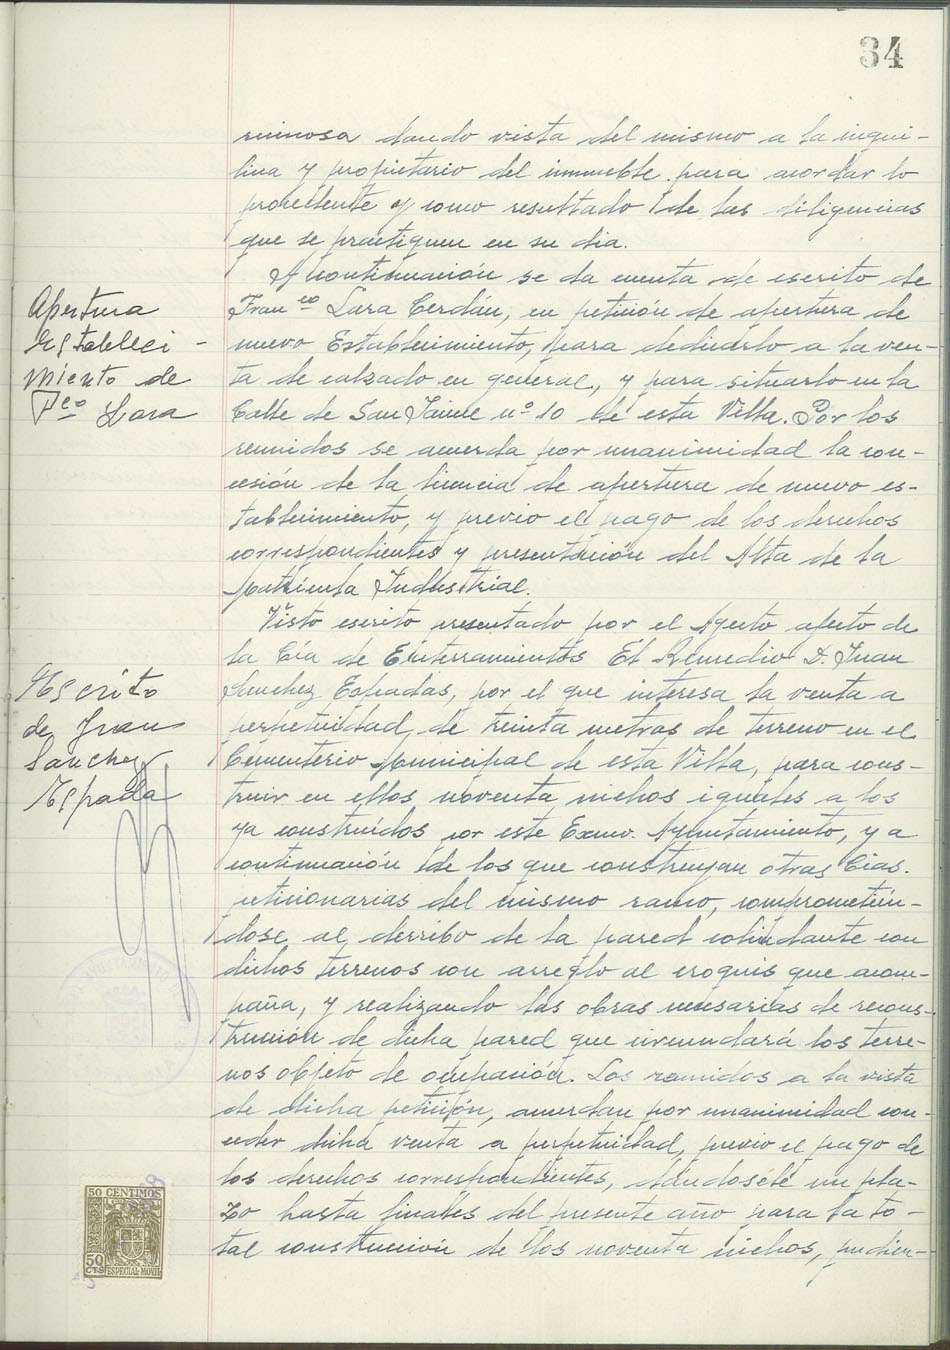 34
ruinosa dando vista del mismo a la inqui-
lina y propietario del inmueble para acordar lo
procedente y como resultado de las diligencias
que se practiquen en su dia.
A continuación se da cuenta de escrito de
Apertura
Establleci-
miento de
Fco Lara
Franco Lara Cerdán, en petición de apertura de
nuevo Establecimiento, para dedicarlo a la ven-
ta de calzado en general, y para situarlo en la
Calle de San Jaime nº 10 de esta Villa. Por los
reunidos se acuerda por unanimidad la con-
cesión de la licencia de apertura de nuevo es-
tablecimiento, y previo el pago de los derechos
correspondientes y presentación del Alta de la
Matrícula Industrial.
Visto escrito presentado por el Agente afecto de
la Cía de Enterramientos El Remedio D. Juan
Escrito
de Juan
Sanchez
Espada
Sanchez Espadas, por el que interesa la venta a
perpetuidad, de treinta metros de terreno en el
Cementerio Municipal de esta Villa, para cons-
truir en ellos noventa nichos iguales a los
ya construídos por este Excmo. Ayuntamiento, y a
continuación de los que construyan otras Cias.
peticionarias del mismo ramo, comprometién-
dose al derribo de la pared colindante con
dichos terrenos con arreglo al croquis que acom-
paña, y realizando las obras necesarias de recons-
trucción de dicha pared que circundará los terre-
nos objeto de ocupación. Los reunidos a la vista
de dicha petición, acuerdan por unanimidad con-
ceder dicha venta a perpetuidad, previo el pago de
los derechos correspondientes, dándosele un pla-
zo hasta finales del presente año para la to-
tal construcción de los noventa nichos, pudien-
50 CENTIMOS
50
CTS
ESPECIAL MOVIL